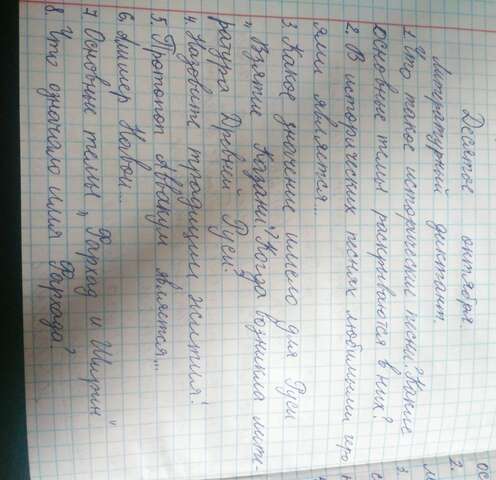 Десятое октября.
Литературный диктант.
1. Что такое исторические песни? Какие
основные темы раскрываются в них?
2. В исторических песнях любимыми геро
ями является...
3. Какое значение имело для Руси
„Взятие Казани"? Когда возникла лите-
ратура Древней Руси?
4. Назовите традиции жития!
5. Протопоп Аввакум является...
6. Алишер Навои...
7. Основные темы „Фархад и Ширин"
8. Что означало имя Фархада?
ос
2.
3.